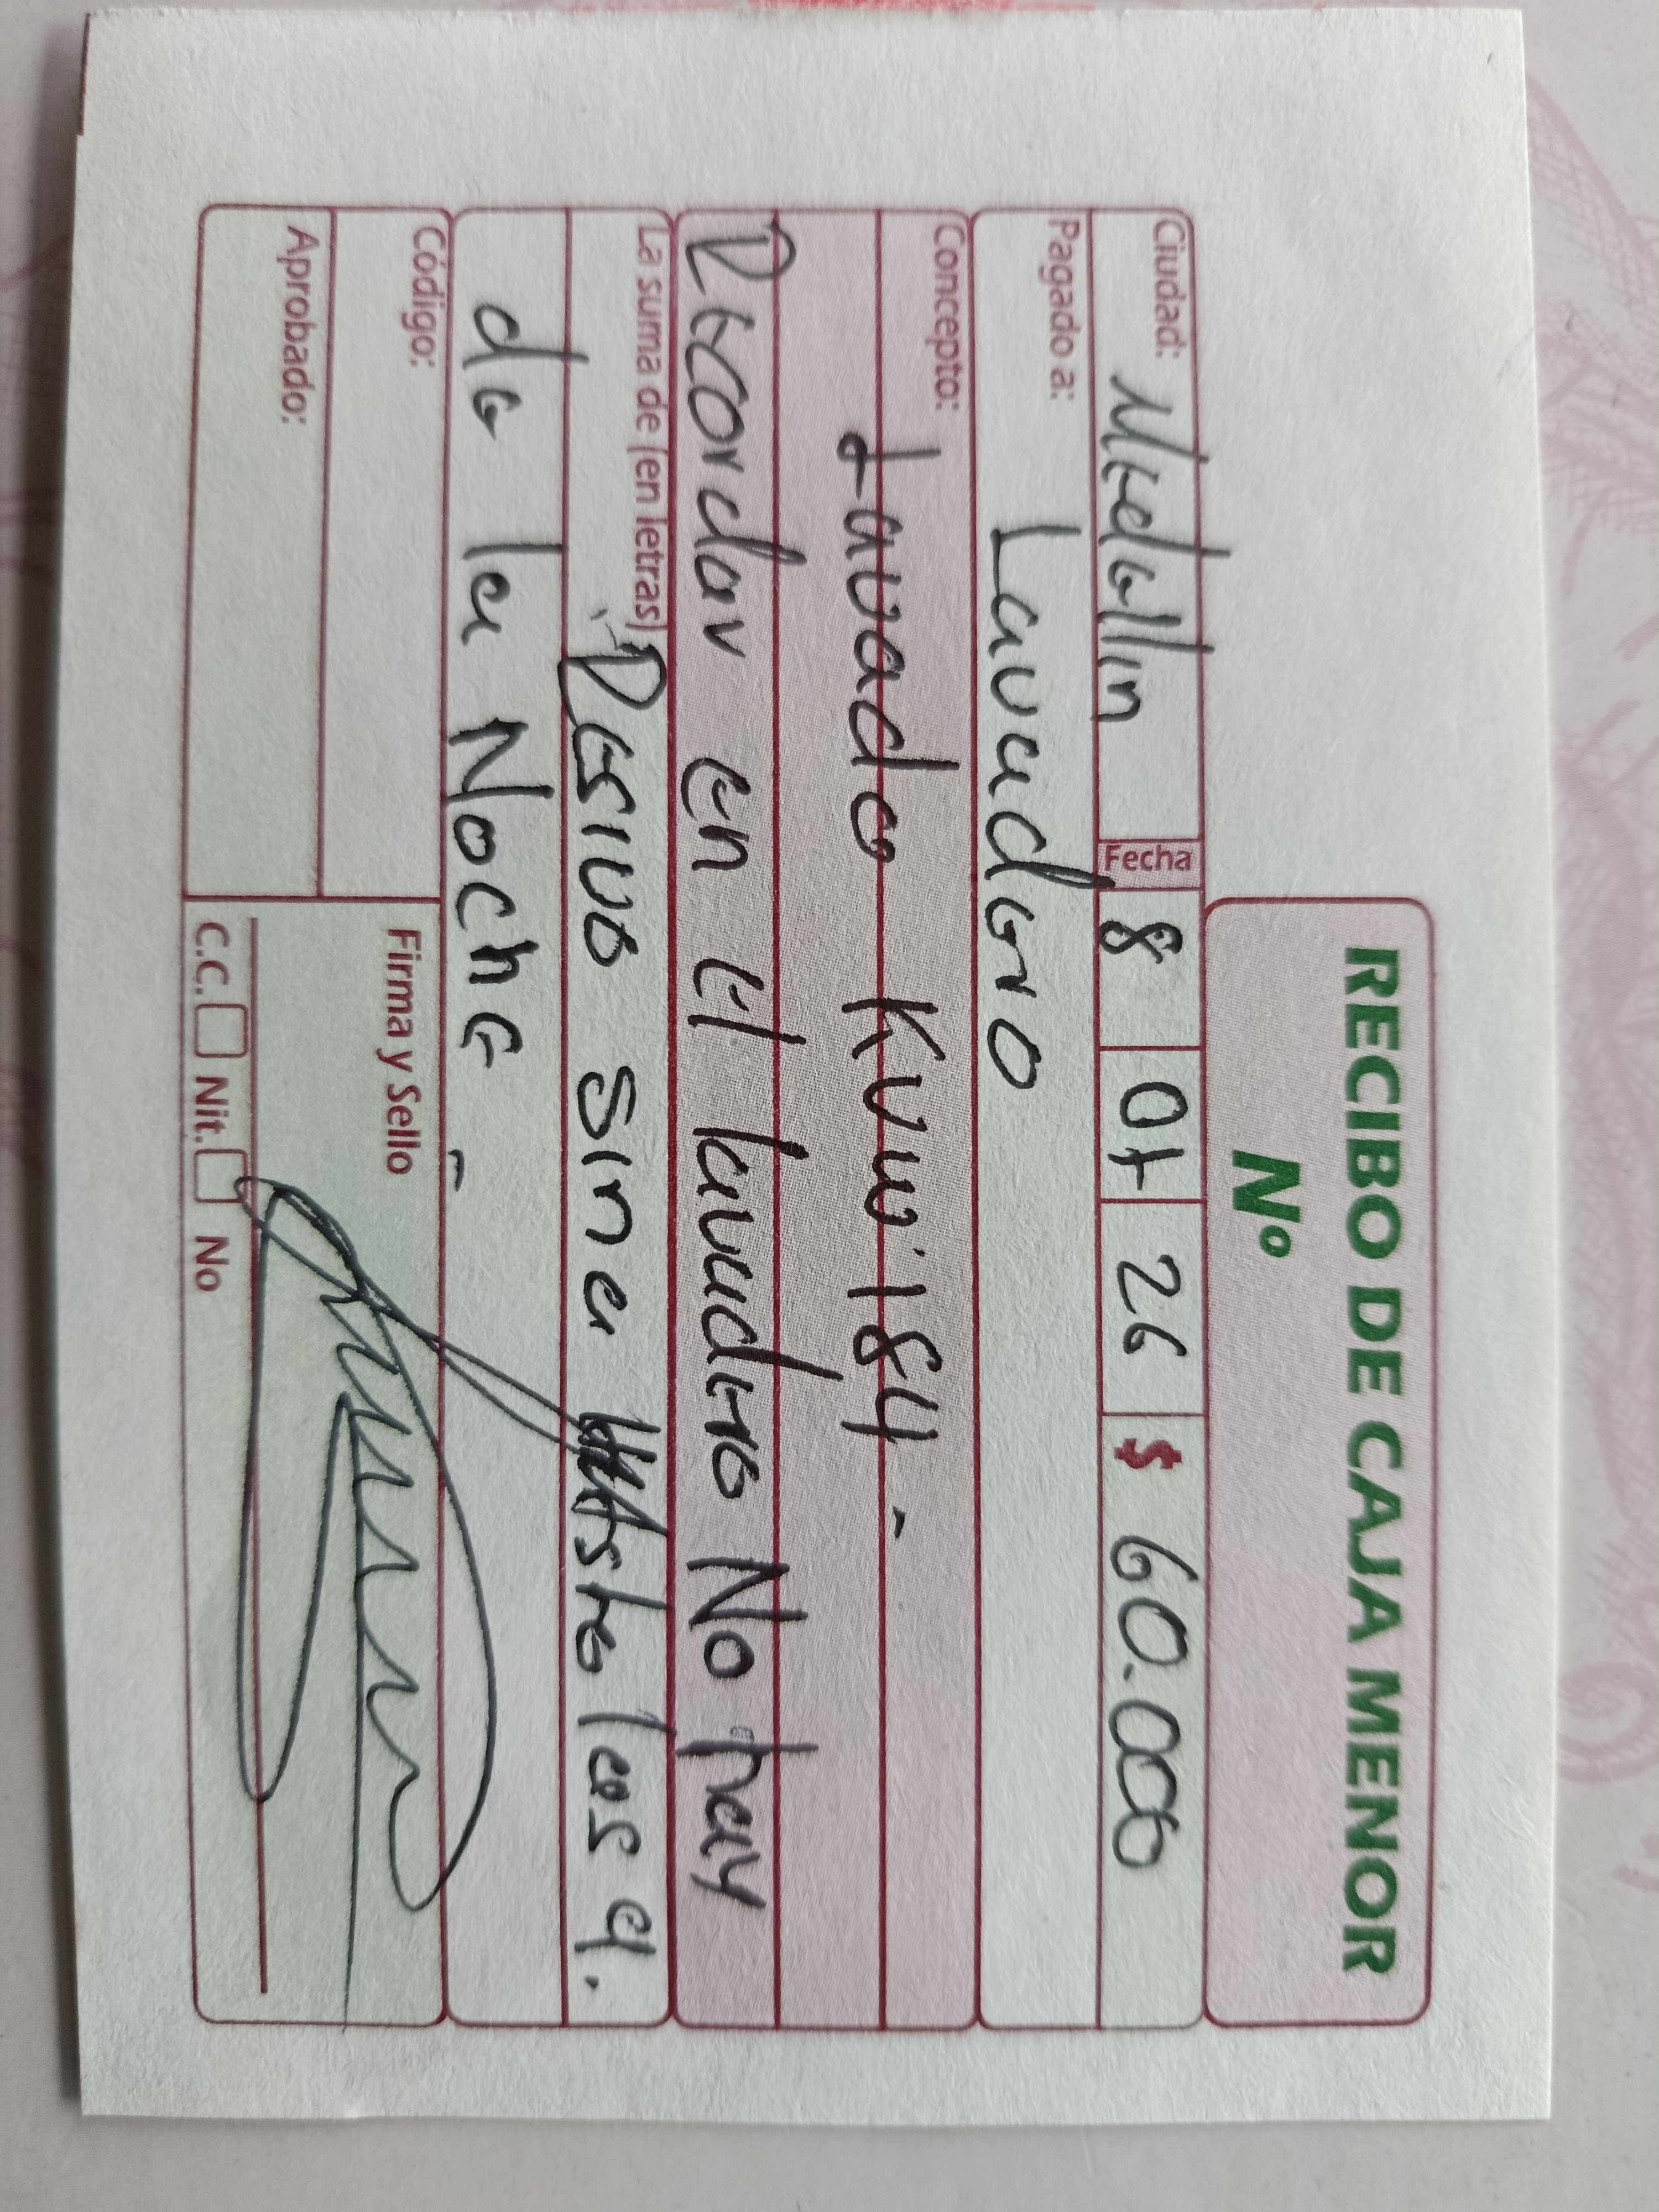 RECIBO DE CAJA MENOR
Nº
Ciudad: Medellin Fecha 8 01 26 $ 60.000
Pagado a: Lavadero
Concepto:
Lavado KVW 184-
Recordar en el lavadero No hay
La suma de (en letras) sino hasta las 9.
de la Noche -
Código:
Aprobado:
Firma y Sello
C.C. Nit. No